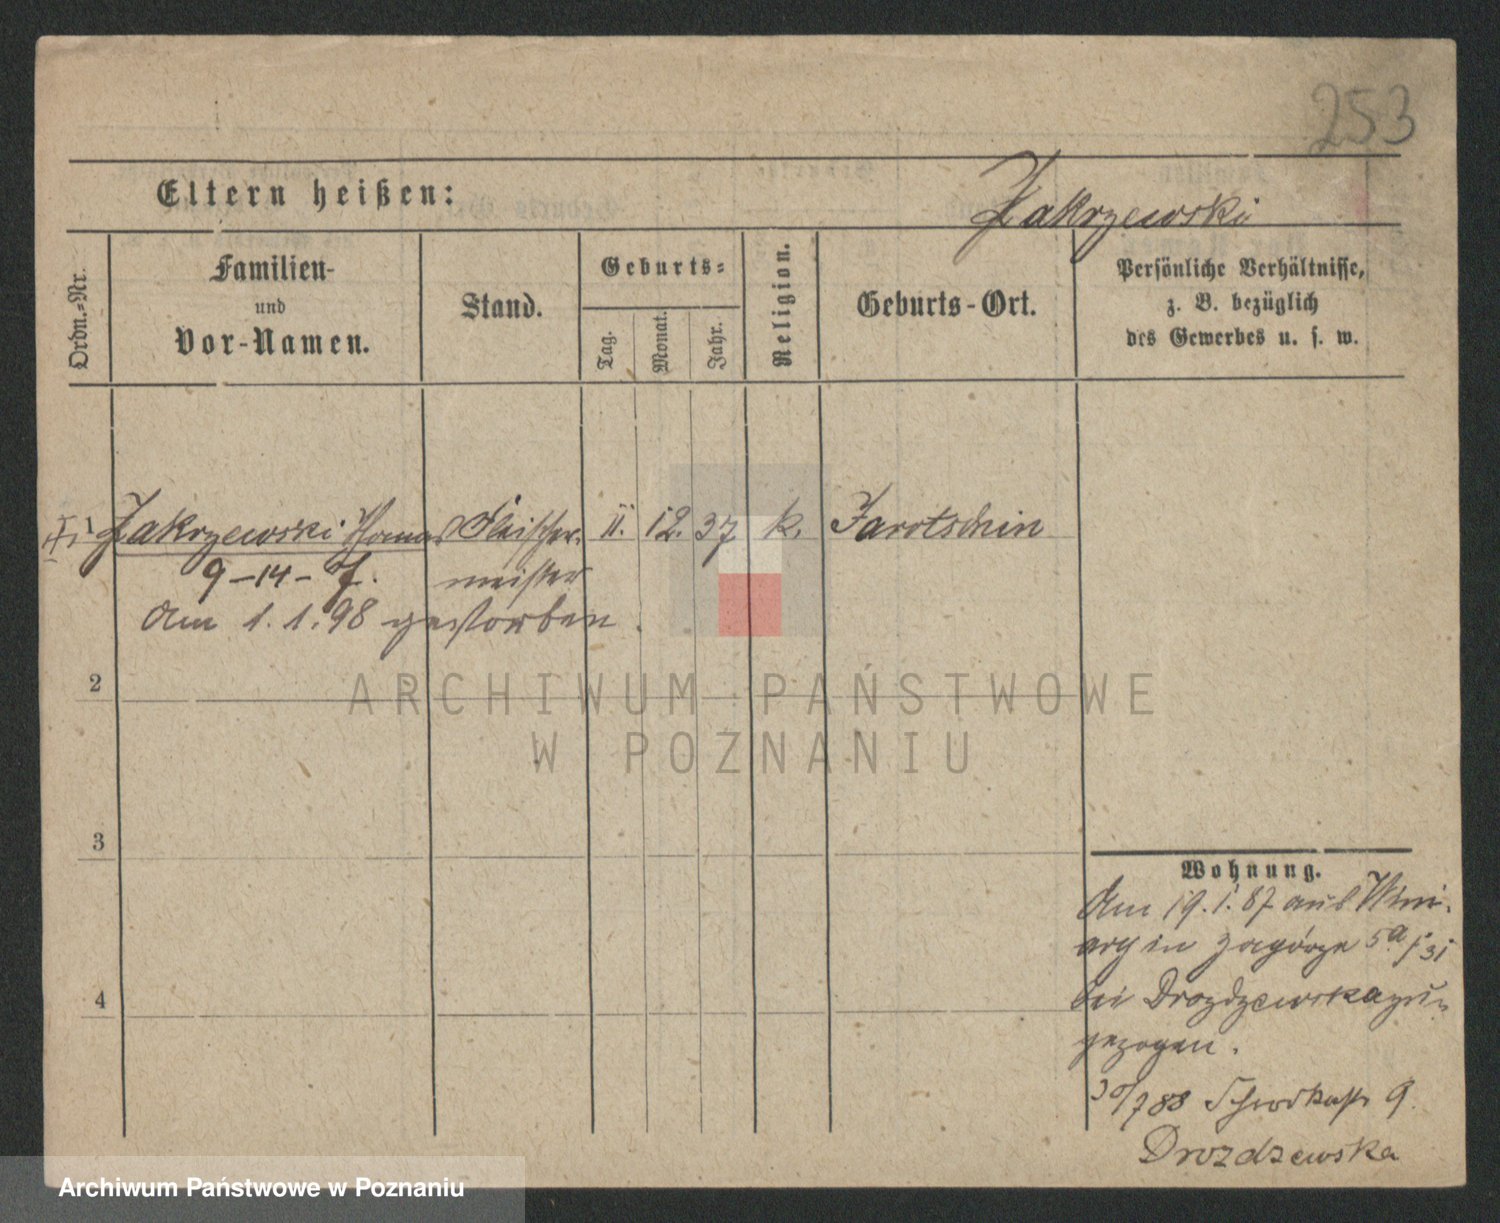 253
Eltern heißen:
Zakrzewski
Ordn.-Nr.
Familien-
und
Vor-Namen.
Stand.
Geburts-
Tag.
Monat.
Jahr.
Religion.
Geburts-Ort.
Persönliche Verhältnisse,
z. B. bezüglich
des Gewerbes u. s. w.
1 Zakrzewski Thomas Fleischer- 11. 12. 37 k. Jarotschin
9-14- meister
Am 1. 1. 98 gestorben.
ARCHIWUM PAŃSTWOWE
W POZNANIU
2
3
4
Wohnung.
Am 19. 1. 87 aus Wini-
ary in Zagórze 5a
bei Drozdzewska zu-
gezogen.
30/7 88 9.
Drozdzewska
Archiwum Państwowe w Poznaniu